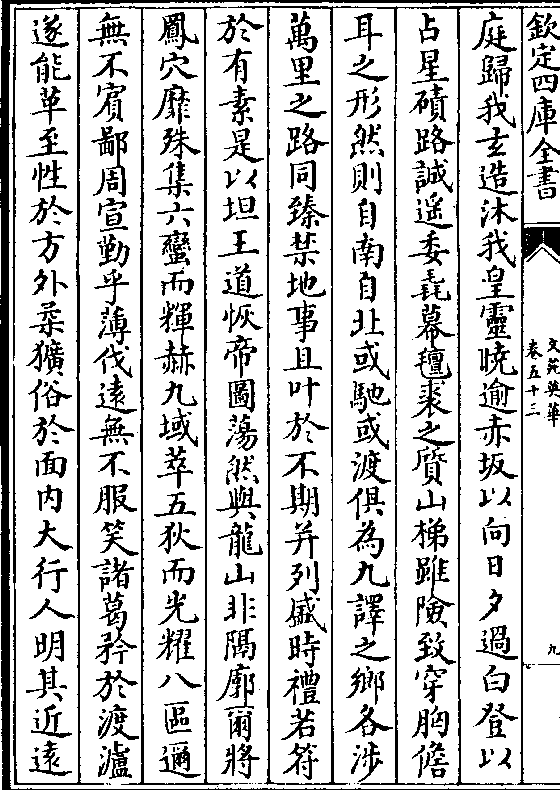 欽定四庫全書
文苑英華
卷五十三
九
庭歸我玄造沐我皇靈曉逾赤坂以向日夕過白登以
占星磧路誠遥委毳幕氊裘之質山梯雖險致穿胸儋
耳之形然則自南自北或馳或渡俱為九譯之鄉各涉
萬里之路同臻禁地事且叶於不期并列盛時禮若符
於有素是以坦王道恢帝圖蕩然與龍山非隔廓爾將
鳳穴靡殊集六蠻而輝赫九域萃五狄而光耀八區邇
無不賓鄙周宣勤乎薄伐遠無不服笑諸葛矜於渡瀘
遂能革至性於方外柔獷俗於面内大行人明其近遠